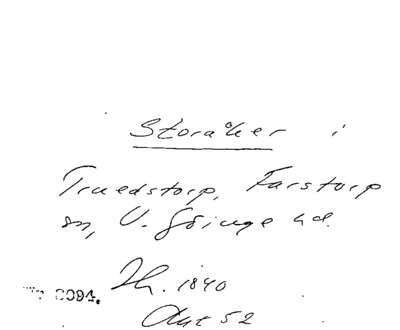 Storåker i
Truedstorp, Farstorp
sn, V. Göinge hd.
0094.
1840
Akt 52